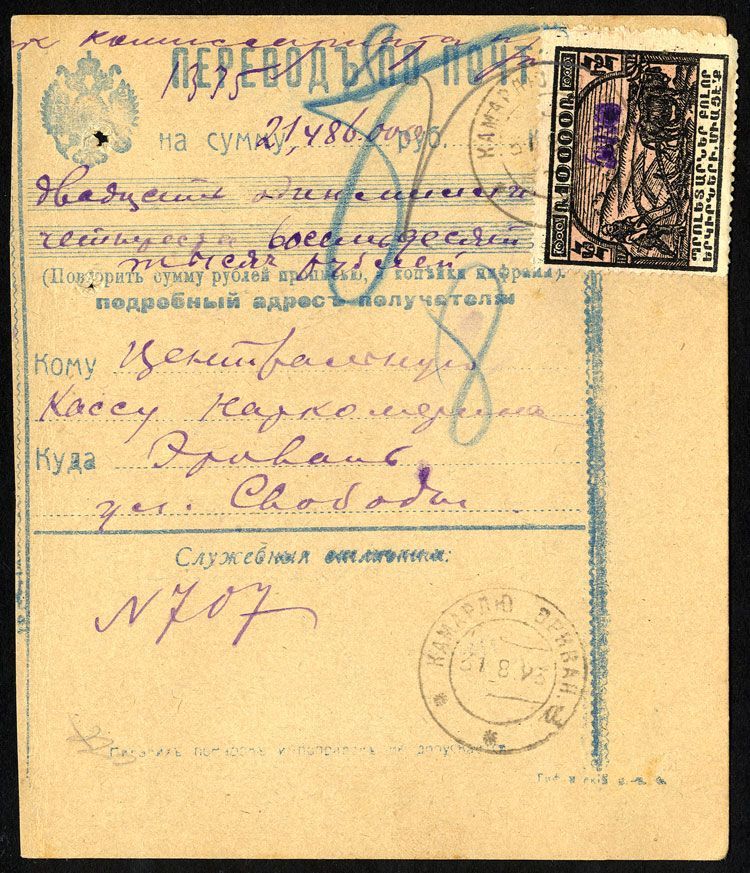 комиссариата
ПЕРЕВОДЪ ПО ПОЧТ
1375
на сумму 21,486.000 руб. К
двадцать один миллион
четыреста восемьдесят
тысяч рублей
(Повторить сумму рублей прописью, а копѣйки цифрами).
подробный адресъ получателя:
Кому Центральную
Кассу Наркомфина
Куда Эривань
ул. Свободы
Служебныя отмѣтки:
N 707
КАМАРЛЮ ЭРИВАН.
8
КАМАРЛЮ
Ռ. 100000 Ռ.
ՊՐՈԼԵՏԱՐՆԵՐ ԲՈԼՈՐ
ԵՐԿԻՐՆԵՐԻ, ՄԻԱՑԷՔ